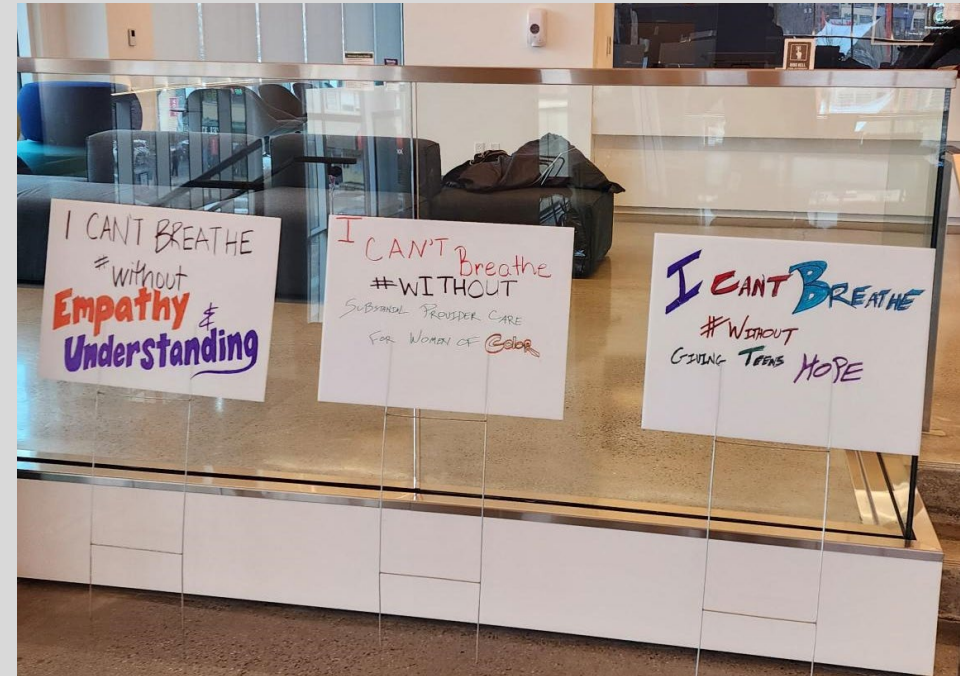 I CAN'T BREATHE
#without
Empathy &
Understanding
I CAN'T Breathe
#WITHOUT
SUBSTANIAL PROVIDER CARE
FOR WOMEN OF Color
I CANT BREATHE
#WITHOUT
GIVING TEENS HOPE